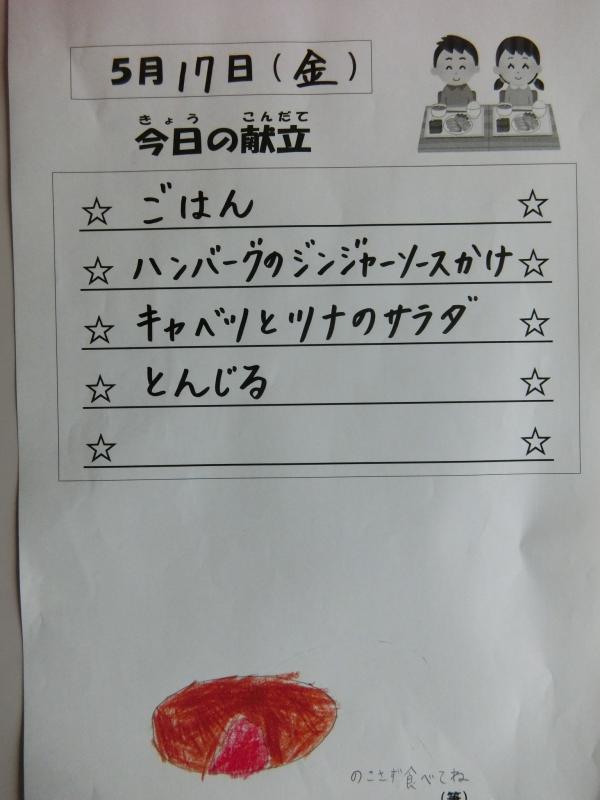 5月17日(金)
きょう こんだて
今日の献立
☆ ごはん ☆
☆ ハンバーグのジンジャーソースかけ ☆
☆ キャベツとツナのサラダ ☆
☆ とんじる ☆
☆ ☆
のこさず食べてね